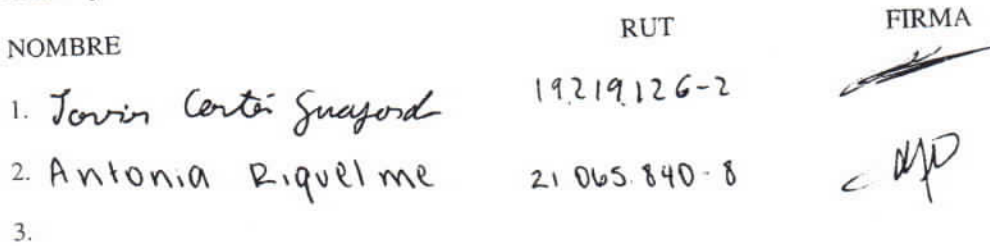 NOMBRE RUT FIRMA
1. Javier Cortés 19.219.126-2
2. Antonia Riquelme 21.065.840-8
3.